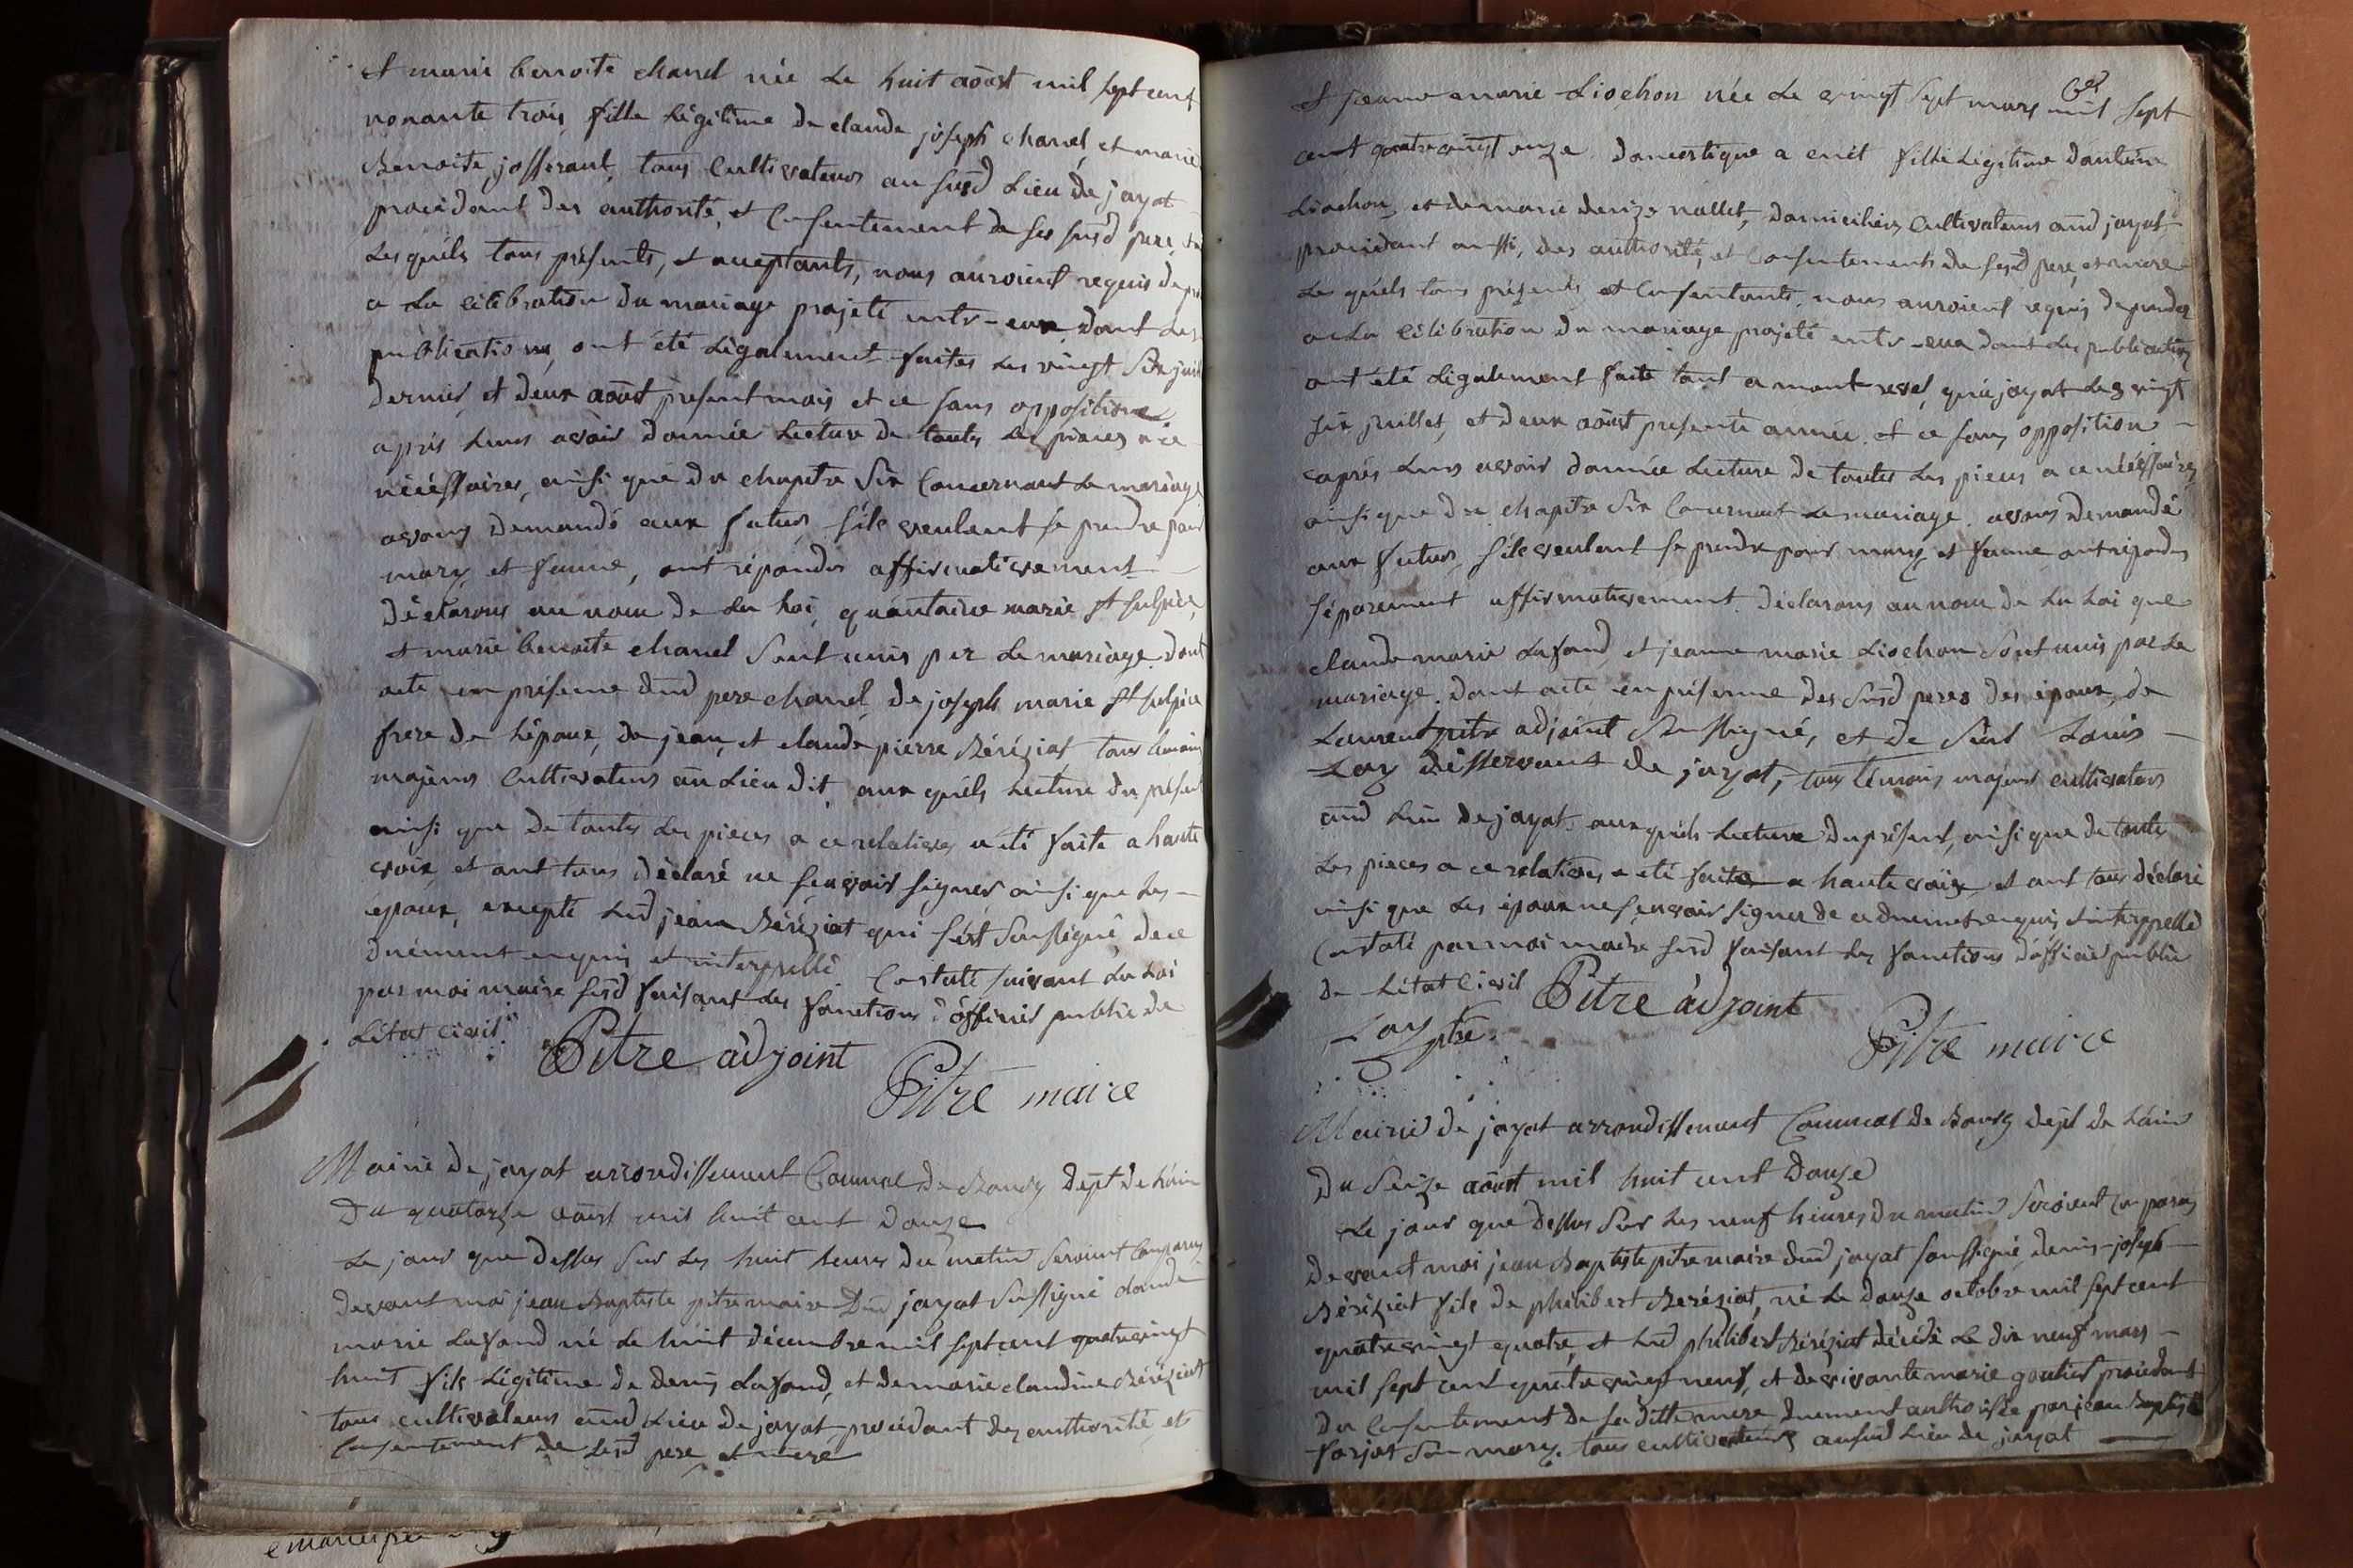 et marie benoite chanel née le huit aôust mil sept cent
nonante trois, fille légitime de claude joseph chanel, et marie
Benoite josserant, tous cultivateurs au susd lieu de jayat
procédant des authorité, et consentement de ses susd pere,
Lesquéls tous présents, et acceptants, nous auroient requis de
a la célébration du mariage projeté entr-eux, dont les
publications, ont été légalement faites les vingt six
dernier, et deux aôust present mois et ce sans opposition
après leurs avoir donnée lecture de toutes les pièces a ce
nécéssaires, ainsi que du chapitre six concernant le mariage
avons demandé aux futurs, s'ils veulent se prendre pour
mary, et femme, ont répondus affirmativement —
Déclarons au nom de la Loi, qu'antoine marie st sulpice,
et marie benoite chanel sont unis par le mariage. dont
acte, en présence dud pere chanel, de joseph marie st sulpice
frere de l'époux, de jean, et claude pierre Béréziat tous témoins
majeurs cultivateurs au lieu dit, aux quéls lecture du présent
ainsi que de toutes les pieces a ce relatives a été faite a haute
voix, et ont tous déclaré ne sçavoir signer ainsi que les —
époux, excepté led jean Béréziat qui s'est soussigné, de ce
duément enquis et interppellé. Constaté suivant la Loi
par moi maire susd faisant les fonctions d'officier public de
L'état civil.
Pitre àdjoint
Pitre maire
Mairie de jayat arrondissement Communal de Bourg dépt de l'ain
Du quatorze aôust mil huit cent douze
Le jour que dessus sur les huit heures du matin seroient comparus
devant moi jean Baptiste pitre maire dud jayat soussigné claude
marie Lafond né le huit décembre mil sept cent quatre vingt
huit fils légitime de denis Lafond, et de marie claudine Béréziat
tous cultivateurs aud lieu de jayat, procédant des authorité, et
consentement de sesd pere et mere
et jeanne marie Liochon née le vingt sept mars mil sept
cent quatre vingt onze, domestique a fille légitime d'antoine
Liochon, et de marie denize nallet, domiciliés cultivateurs aud jayat
procédant aussi, des authorité, et consentements de sesd pere, et mere
Lesquéls tous présents et consentants, nous auroient requis de proceder
a la célébration du mariage projeté entr-eux dont les publications
ont été légalement faite tant a montrevel, qu'a jayat les vingt
six juillet, et deux aôust presente année. et ce sans opposition —
après leurs avoir donnée lecture de toutes les pieces a ce nécéssaires
ainsi que du chapitre six concernant le mariage. avons demandé
aux futurs, s'ils veulent se prendre pour mary, et femme, ont répondus
séparement affirmativement. déclarons au nom de la Loi que
claude marie Lafond, et jeanne marie Liochon sont unis par le
mariage. dont acte en présence des susd peres des époux, de
Laurent pitre adjoint soussigné, et de sieur Louis —
Loy désservant de jayat, tous témoins majeurs cultivateurs
aud lieu de jayat. aux quéls lecture du présent, ainsi que de toutes
les pieces a ce relatives a été faite a haute voix, et ont tous déclaré
ainsi que les époux ne sçavoir signer de ce duement enquis, et interppellé
Constaté par moi maire susd faisant les fonctions d'officier public
de L'état Civil Pitre àdjoint
Loy ptre. Pitre maire
Mairie de jayat arrondissement Communal de Bourg dépt de l'ain
Du Seize aôust mil huit cent douze
Le jour que dessus sur les neuf heures du matin seroient comparus
devant moi jean Baptiste pitre maire dud jayat soussigné, denis-joseph
Béréziat fils de philibert Béréziat, né le douze octobre mil sept cent
quatre vingt quatre, et led philibert Béréziat décédé le dix neuf mars —
mil sept cent quatre vingt neuf, et de vivante marie procédant
du consentement de saditte mere duement authorisée par jean Baptiste
son mary. tous cultivateurs au susd lieu de jayat —